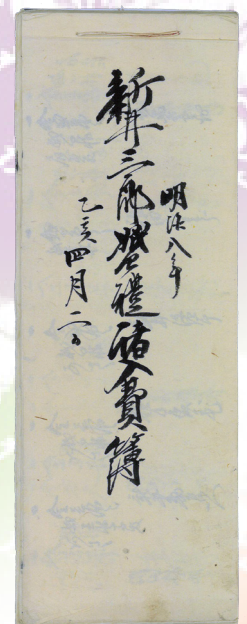 明治八年
新井三郎婚禮諸入費簿
乙亥四月二日